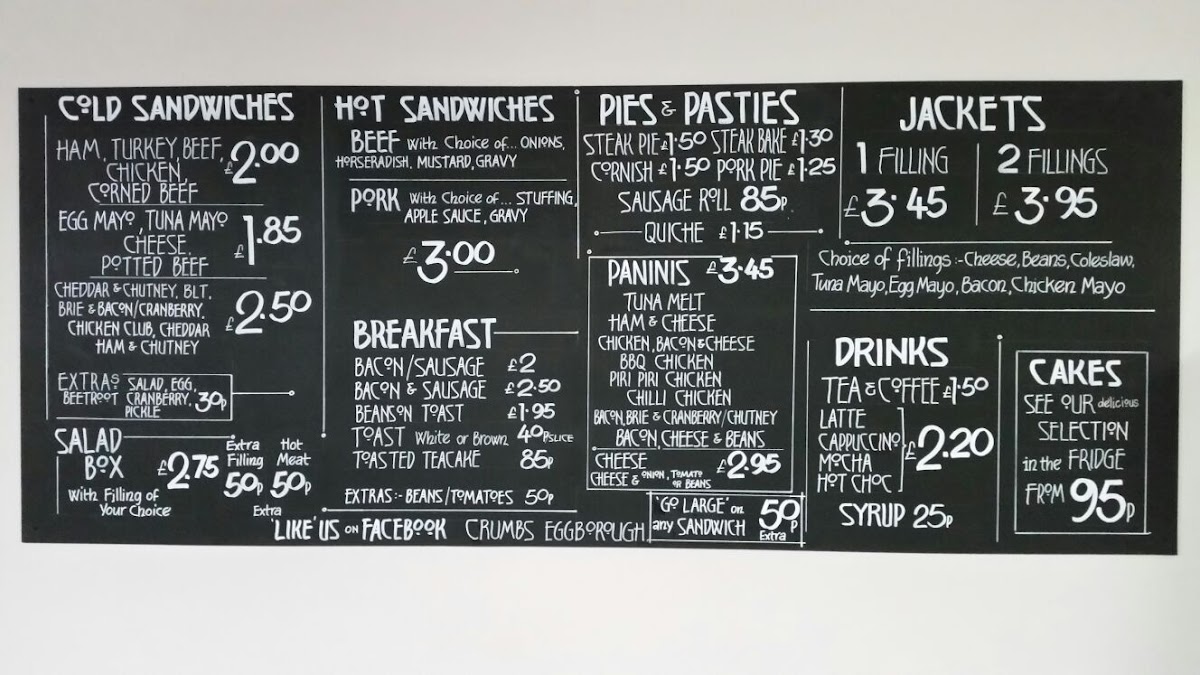 COLD SANDWICHES
HAM, TURKEY, BEEF,
CHICKEN,
CORNED BEEF
£2.00
EGG MAYO, TUNA MAYO
CHEESE.
POTTED BEEF
£1.85
CHEDDAR & CHUTNEY, BLT,
BRIE & BACON/CRANBERRY,
CHICKEN CLUB, CHEDDAR
HAM & CHUTNEY
£2.50
EXTRAS SALAD, EGG,
BEETROOT CRANBERRY,
PICKLE
30p
SALAD
BOX
£2.75
With Filling of
Your Choice
Extra
Filling
50p
Hot
Meat
50p
Extra
HOT SANDWICHES
BEEF With Choice of... ONIONS,
HORSERADISH, MUSTARD, GRAVY
PORK With Choice of... STUFFING,
APPLE SAUCE, GRAVY
£3.00
BREAKFAST
BACON/SAUSAGE £2
BACON & SAUSAGE £2.50
BEANS ON TOAST £1.95
TOAST White or Brown 40P SLICE
TOASTED TEACAKE 85p
EXTRAS:- BEANS/TOMATOES 50p
PIES & PASTIES
STEAK PIE £1.50 STEAK BAKE £1.30
CORNISH £1.50 PORK PIE £1.25
SAUSAGE ROLL 85p
QUICHE £1.15
PANINIS £3.45
TUNA MELT
HAM & CHEESE
CHICKEN, BACON & CHEESE
BBQ CHICKEN
PIRI PIRI CHICKEN
CHILLI CHICKEN
BACON, BRIE & CRANBERRY/CHUTNEY
BACON, CHEESE & BEANS
CHEESE
CHEESE & ONION, TOMATO
OR BEANS
£2.95
'GO LARGE' on
any SANDWICH
50p
Extra
JACKETS
1 FILLING
£3.45
2 FILLINGS
£3.95
Choice of fillings:- Cheese, Beans, Coleslaw,
Tuna Mayo, Egg Mayo, Bacon, Chicken Mayo
DRINKS
TEA & COFFEE £1.50
LATTE
CAPPUCCINO
MOCHA
HOT CHOC
£2.20
SYRUP 25p
CAKES
SEE OUR delicious
SELECTION
in the FRIDGE
FROM 95p
'LIKE' US ON FACEBOOK CRUMBS EGGBOROUGH